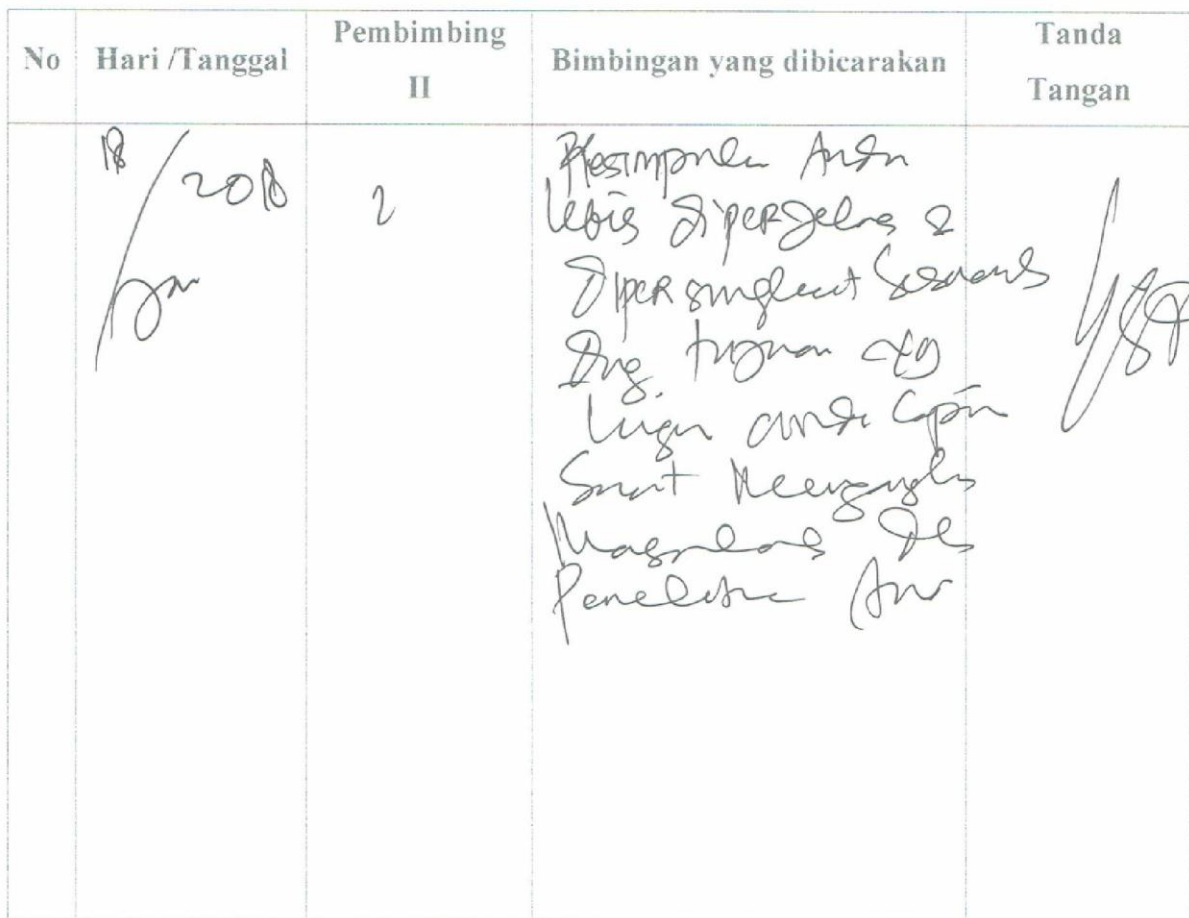 No
Hari /Tanggal
Pembimbing
II
Bimbingan yang dibicarakan
Tanda
Tangan
18
2018
Jan
2
Kesimpulan Anda
lebih diperjelas &
dipersingkat sesuai
dng. tujuan yg
ingin anda capai
Saat mengangkat
Masalah
Penelitian